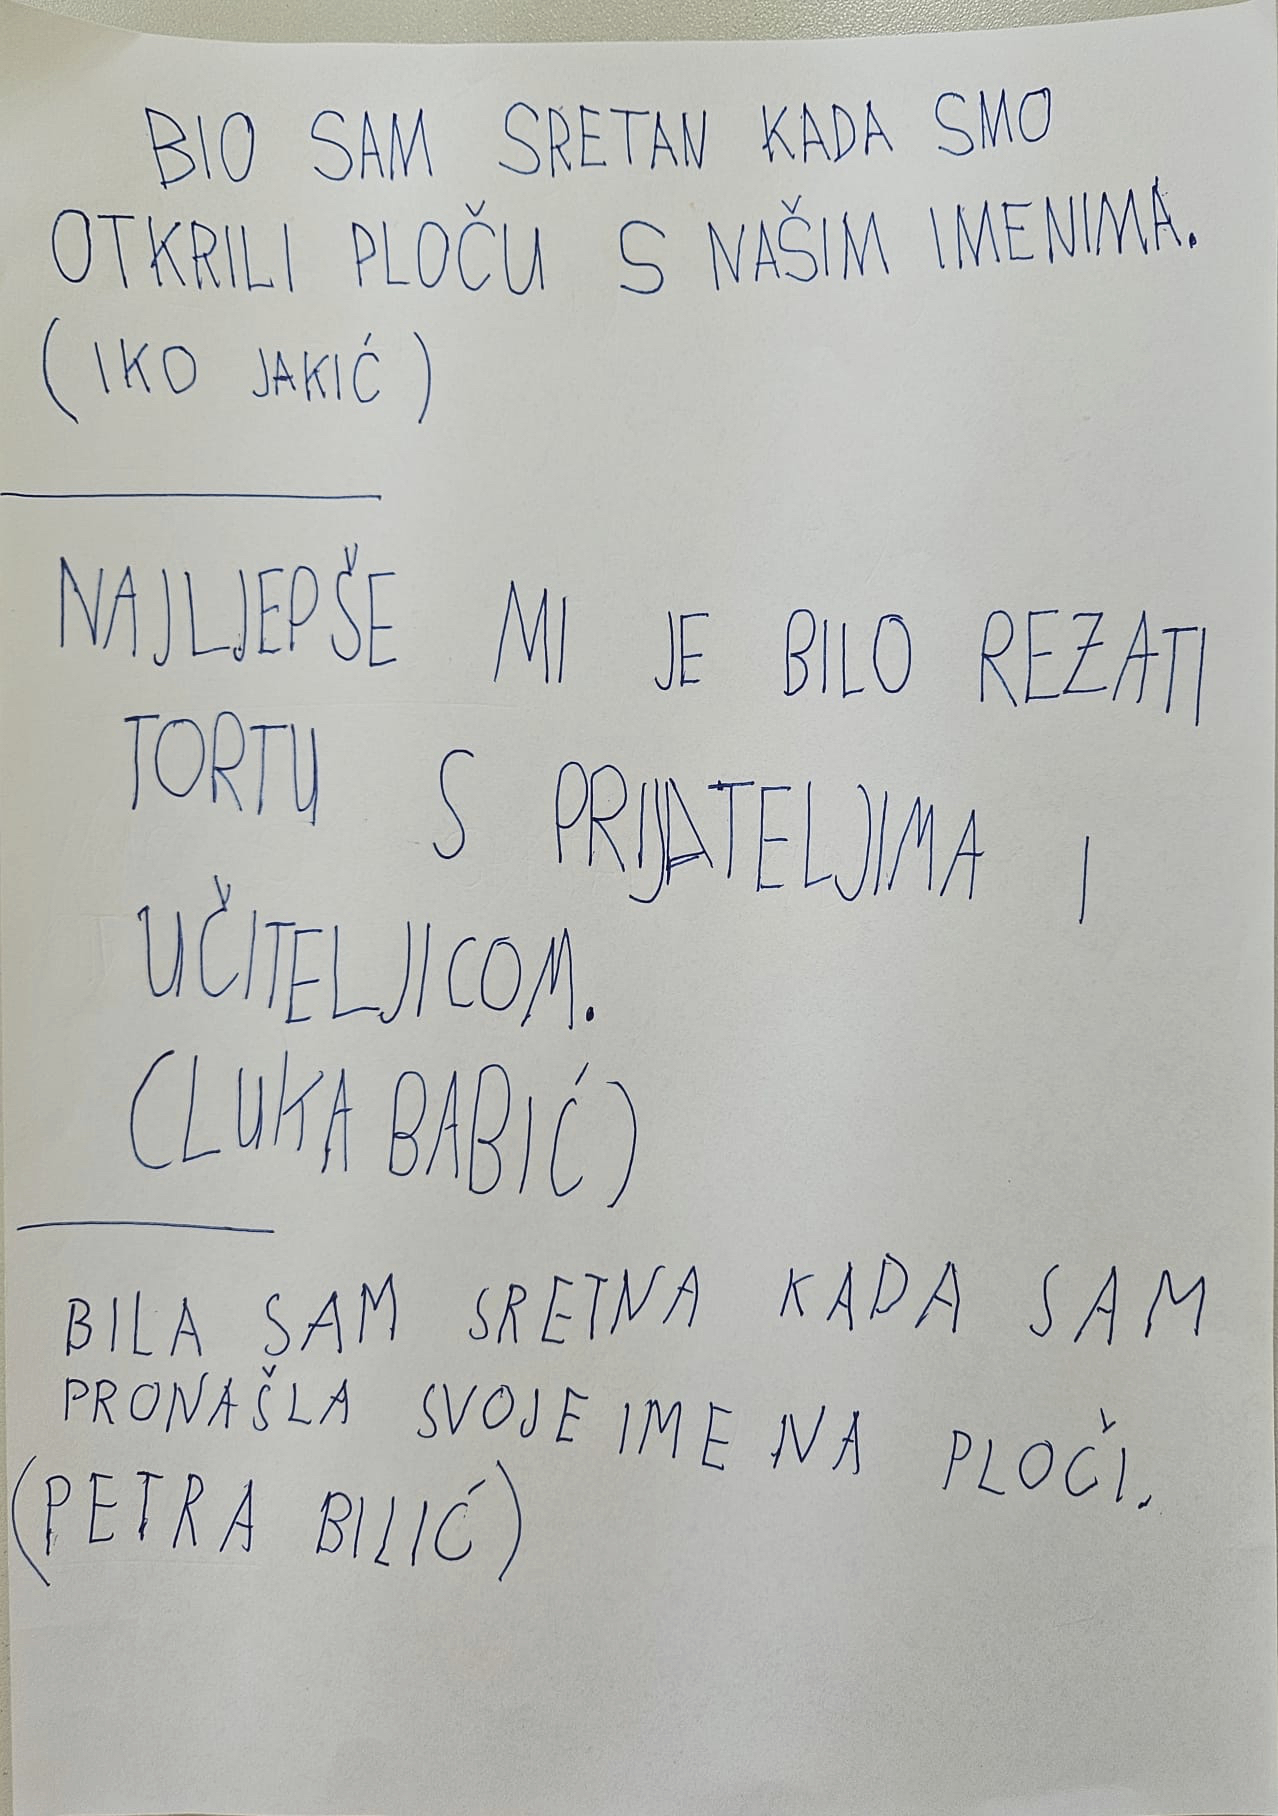 BIO SAM SRETAN KADA SMO
OTKRILI PLOČU S NAŠIM IMENIMA.
(IKO JAKIĆ)
NAJLJEPŠE MI JE BILO REZATI
TORTU S PRIJATELJIMA I
UČITELJICOM.
(LUKA BABIĆ)
BILA SAM SRETNA KADA SAM
PRONAŠLA SVOJE IME NA PLOČI.
(PETRA BILIĆ)